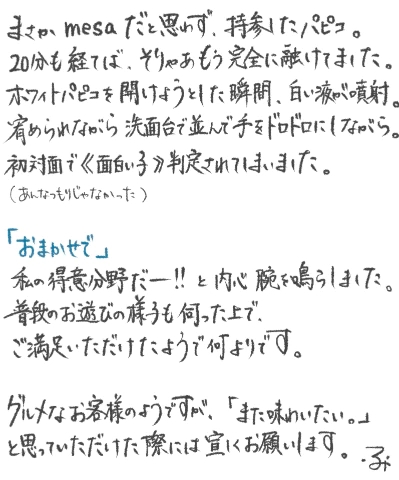 まさか、mesaだと思わず、持参したパピコ。
20分も経てば、そりゃあもう完全に融けてました。
ホワイトパピコを開けようとした瞬間、白い液が噴射。
宥められながら洗面台で並んで手をドロドロにしながら。
初対面で《面白い子》判定されてしまいました。
（あんなつもりじゃなかった）
「おまかせで」
私の得意分野だー!!と内心腕を鳴らしました。
普段のお遊びの様子も伺った上で、
ご満足いただけたようで何よりです。
グルメなお客様のようですが、「また味わいたい。」
と思っていただけた際には宜くお願いします。